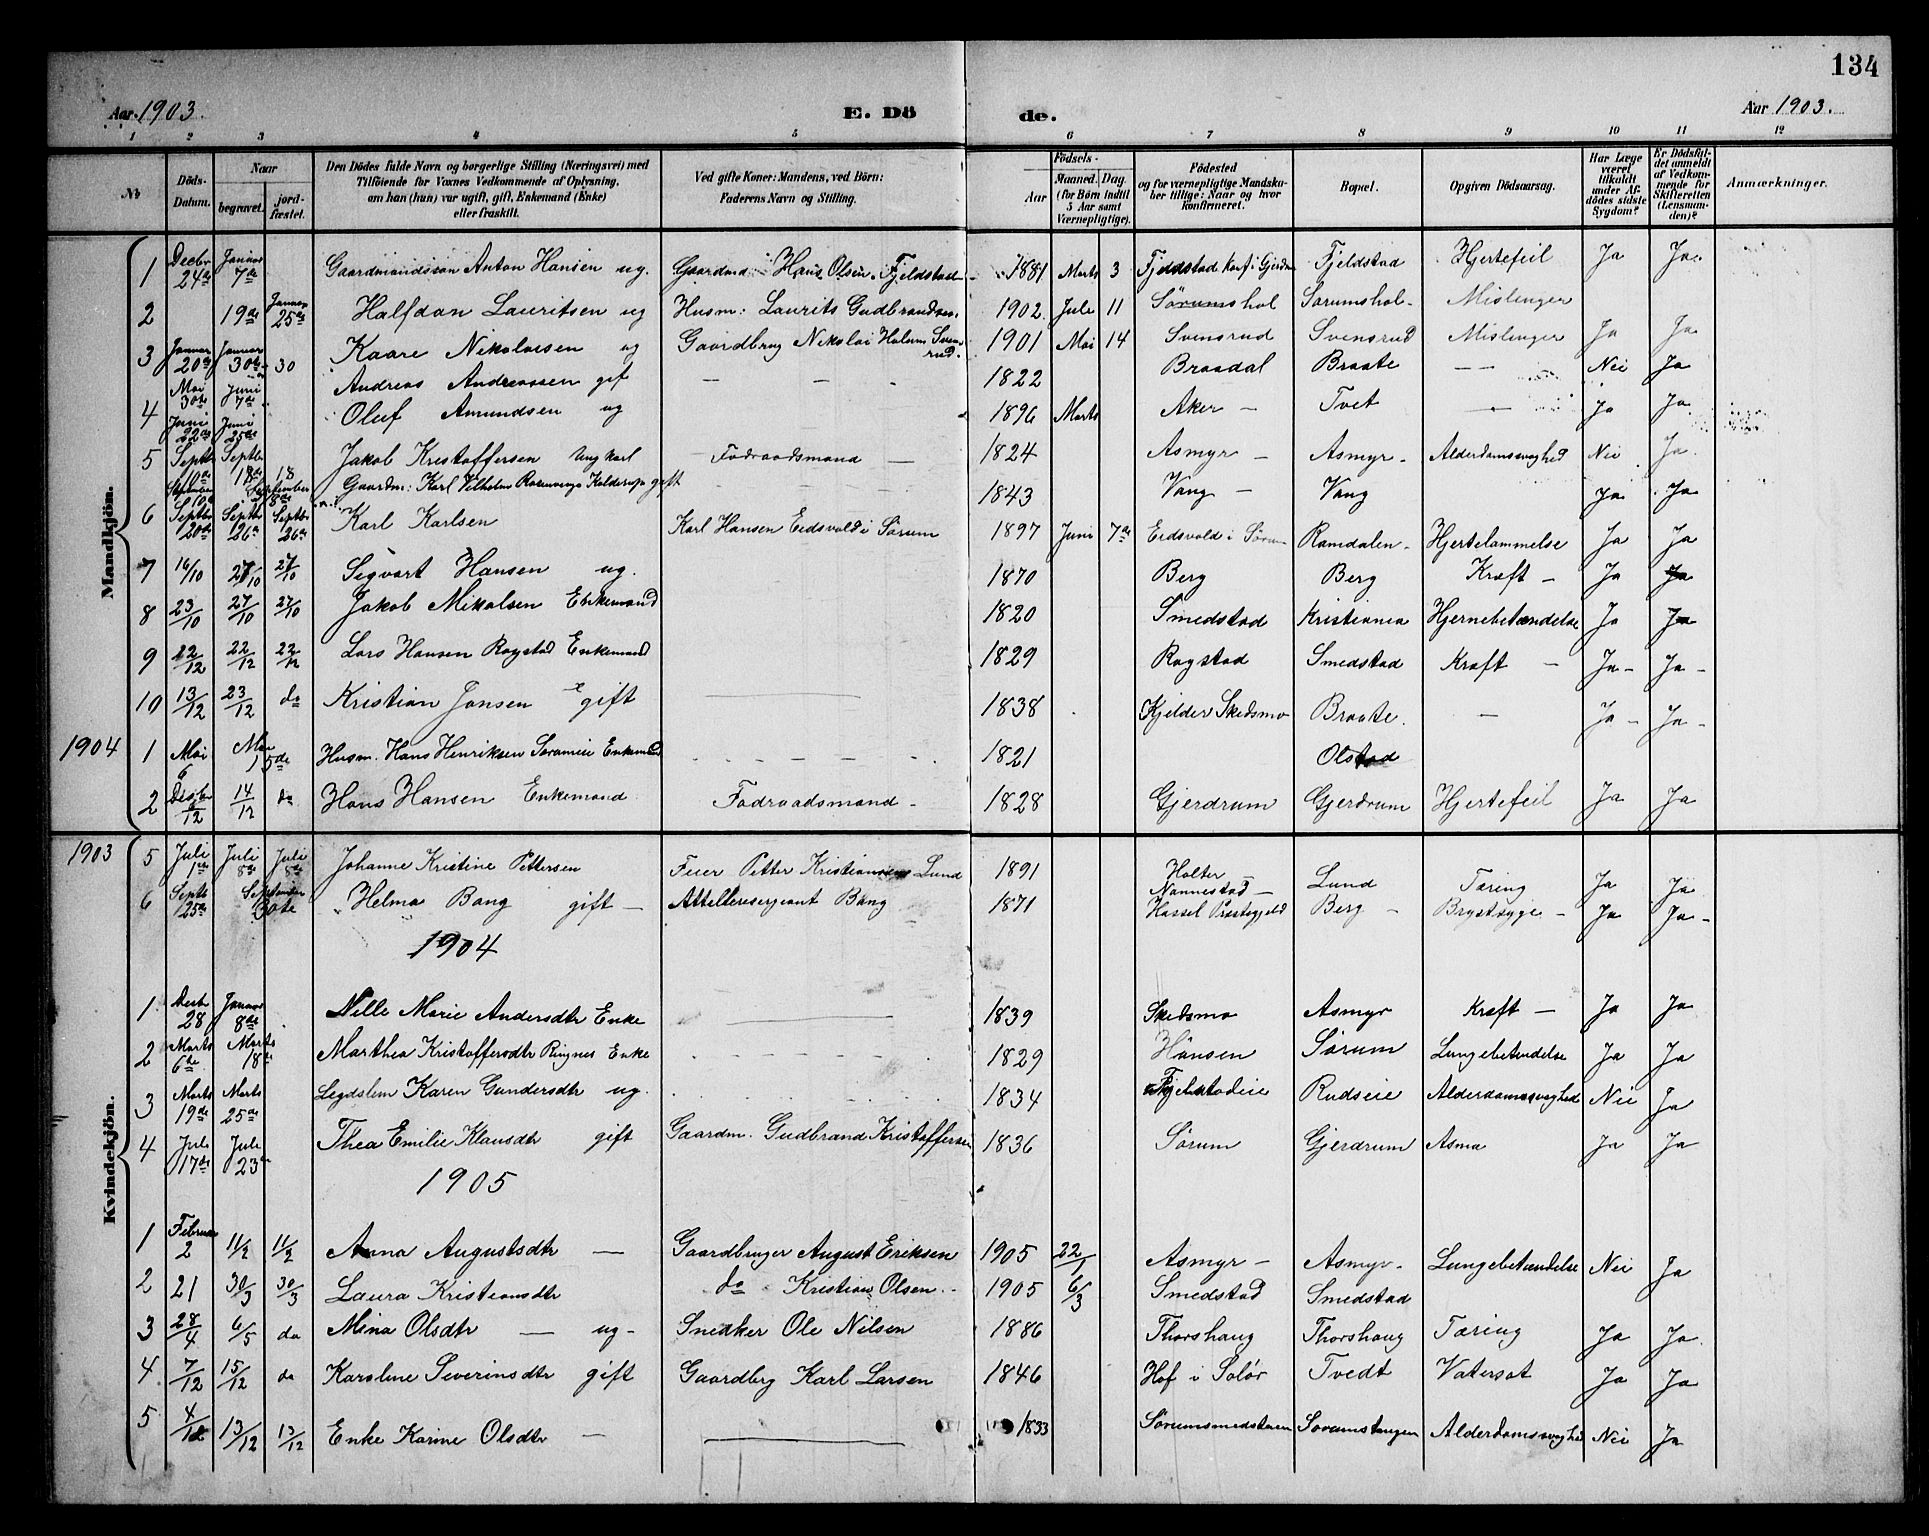 134
Aar 1903. E. Dö de. Aar 1903.
1 2 3 4 5 6 7 8 9 10 11 12
No Döds-Datum. Naar begravet. jordfæstet. Den Dödes fulde Navn og borgerlige Stilling (Næringsvei) med Tilföiende for Voxnes Vedkommende af Oplysning, om han (hun) var ugift, gift, Enkemand (Enke) eller fraskilt. Ved gifte Koner: Mandens, ved Börn: Faderens Navn og Stilling. Födsels- Aar Maaned. Dag. (for Börn indtil 5 Aar samt Værnepligtige). Födested og for værnepligtige Mandskaber tillige: Naar og hvor konfirmeret. Bopæl. Opgiven Dödsaarsag. Har Læge været tilkaldt under Afdödes sidste Sygdom? Er Dödsfaldet anmeldt af Vedkommende for Skifteretten (Lensmanden)? Anmærkninger.
Mandkjön.
1 Decbr 24de Januar 7de Gaardmandssön Anton Hansen ug. Gaardmd Hans Olsen Fjeldstad 1881 Marts 3 Fjeldstad Konf. i Gjerdrum Fjeldstad Hjertefeil Ja Ja
2 19de Januar 25de Halfdan Lauritsen ug Husm: Laurits Gudbrandsen 1902 Jule 11 Sørumshol Sørumshol Mislinger
3 Januar 20de Januar 30te 30 Kaare Nikolaisen ug Gaardbrug Nikolai Halvors Svensrud. 1901 Mai 14 Svensrud Svensrud Mislinger Ja Ja
Mai 30te Juni 7de Andreas Andreassen gif — — 1822 Braadal Braate — — Nei Ja
4 Juni 22de Juni 25de Oluf Amundsen ug 1896 Marts Aker — Tvet — Ja Ja
5 Septbr 10de Septbr 18de 18 Jakob Kristoffersen Ungkarl Födraadsmand — 1824 Asmyr — Asmyr - Alderdomssvaghed Nei Ja.
September 10de September 18de Gaardm: Karl Vilhelm Rosenvinge Kolderup gift 1843 Vang — Vang Ja Ja
6 Septbr 20de Septbr 26de Septbr 26de Karl Karlsen Karl Hansen Eidsvold i Sørum 1897 Juni 7de Eidsvold i Sørum Ramdalen - Hjertelammelse Ja Ja
7 16/10 27/10 27/10 Sigvart Hansen ug. 1870 Berg Berg Kræft — Ja Ja
8 23/10 27/10 27/10 Jakob Mikalsen Enkemand 1820 Smedstad Kristiania Hjernebetændelse Ja Ja
9 22/12 22/12 22/12 Lars Hansen Rogstad Enkemand 1829 Rogstad Smedstad Kræft — Ja - Ja -
10 13/12 23/12 do Kristian Jansen gift 1838 Kjelder Skedsmo Braate. — Ja - Ja -
1904 1 Mai 6 Mai 15de Husm. Hans Henriksen Enkemd 1821 Olstad
2 Desbr 6/12 14/12 do Hans Hansen Enkemand Födraadsmand - 1828 Gjerdrum Gjerdrum Hjertefeil Ja Ja
Kvindekjön.
1903 5 Juli 1ste Juli 8de Juli 8de Johanne Kristine Pettersen Feier Petter Kristiansen Lund 1891 Holter — Nannestad — Lund Tæring Ja Ja
6 Septbr 25de September 30te Helma Bang gift — Attellerisergeant Bang 1871 Hassel Præstegjeld Berg — Brystsyge — Ja Ja -
1904
1 Desbr 28 Januar 8de Nille Marie Andersdtr Enke 1839 Skedsmo Asmyr Kræft — Ja Ja
2 Marts 6te Marts 18de Marthea Kristoffersdtr Ringnes Enke 1829 Hönsen Sørum Lungebetændelse Ja Ja
3 Marts 19de Marts 25de Legdslem Karen Gundersdtr ug. 1834 Fjelstadeie Rudseie Alderdomssvaghed Nei Ja
4 Juli 17de Juli 23de Thea Emilie Klausdtr gift Gaardm. Gudbrand Kristoffersen 1836 Sørum Gjerdrum Asma Ja Ja
1905
1 Februar 2 11/2 11/2 Anna Augustsdtr — Gaardbruger August Eriksen 1905 22/1 Asmyr — Asmyr - Lungebetændelse Nei Ja
2 21 30/3 30/3 Laura Kristiansdtr do Kristian Olsen 1905 6/3 Smedstad Smedstad
3 28/4 6/5 do Mina Olsdtr — ug - Snedker Ole Nilsen 1886 Thorshaug Thorshaug Tæring Ja Ja
4 7/12 15/12 do Karoline Severinsdtr gift Gaardbrg Karl Larsen 1846 Hof i Solør Tvedt Vatersot Ja Ja
5 4/12 13/12 13/12 Enke Karine Olsdtr — 1833 Sørumsmedstuen Sørumstangen Alderdomssvaghed Nei Ja